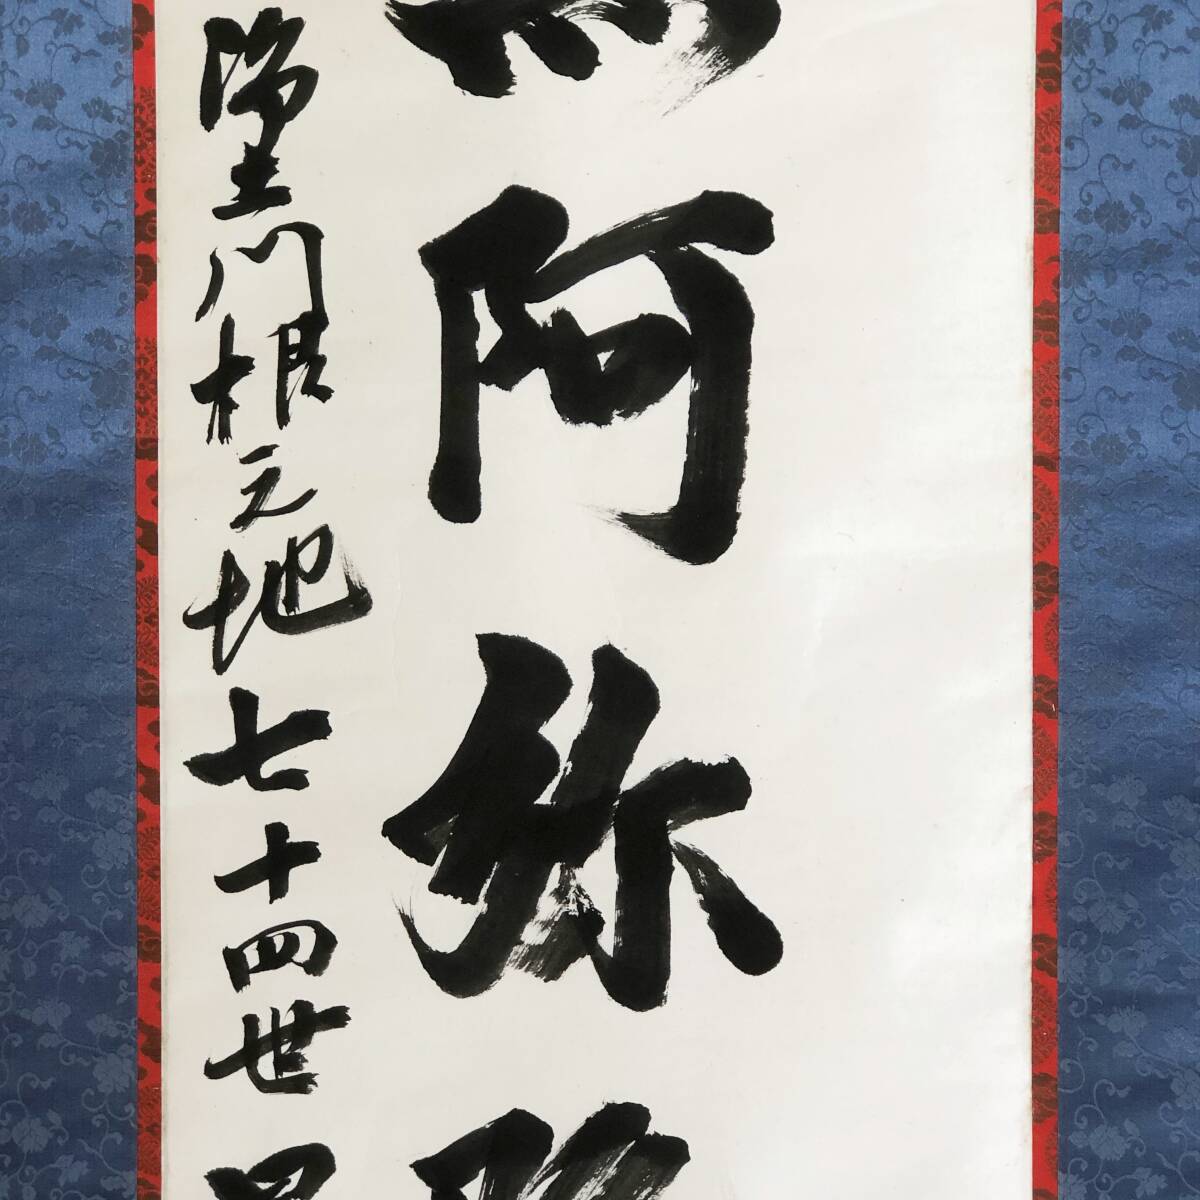 阿弥
浄土門根元地七十四世